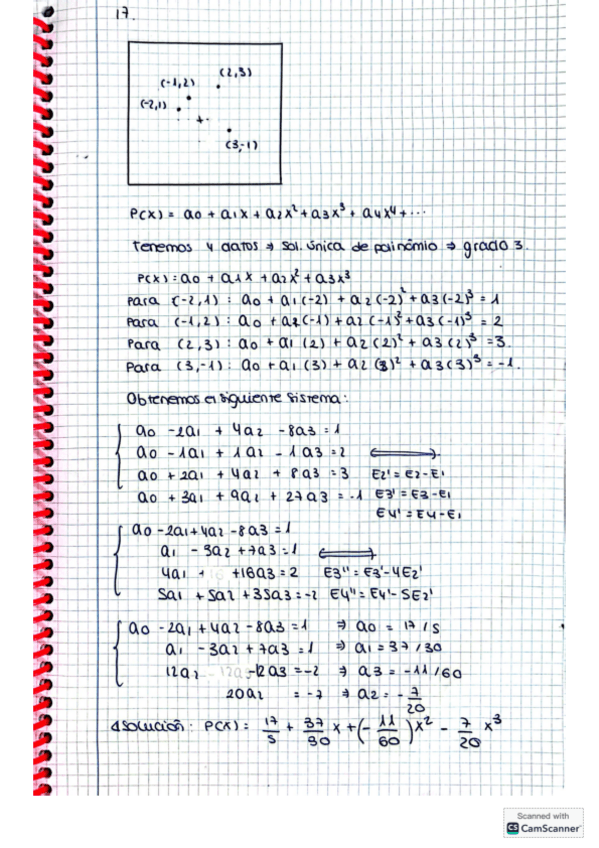 17.
(2,3)
(-1,2)
(-2,1)
(3,-1)
P(x) = a0 + a1x + a2x² + a3x³ + a4x⁴ + ...
Tenemos 4 datos ⇒ Sol. única de polinómio ⇒ grado 3.
P(x) = a0 + a1x + a2x² + a3x³
Para (-2,1) : a0 + a1(-2) + a2(-2)² + a3(-2)³ = 1
Para (-1,2) : a0 + a1(-1) + a2(-1)² + a3(-1)³ = 2
Para (2,3) : a0 + a1(2) + a2(2)² + a3(2)³ = 3.
Para (3,-1) : a0 + a1(3) + a2(3)² + a3(3)³ = -1.
Obtenemos el siguiente sistema:
a0 - 2a1 + 4a2 - 8a3 = 1
a0 - 1a1 + 1a2 - 1a3 = 2 ⟷
a0 + 2a1 + 4a2 + 8a3 = 3 E2' = E2 - E1
a0 + 3a1 + 9a2 + 27a3 = -1 E3' = E3 - E1
E4' = E4 - E1
a0 - 2a1 + 4a2 - 8a3 = 1
a1 - 3a2 + 7a3 = 1 ⟷
4a1 + 16a3 = 2 E3'' = E3' - 4E2'
5a1 + 5a2 + 35a3 = -2 E4'' = E4' - 5E2'
a0 - 2a1 + 4a2 - 8a3 = 1 ⇒ a0 = 17/5
a1 - 3a2 + 7a3 = 1 ⇒ a1 = 37/30
12a2 - 12a3 = -2 ⇒ a3 = -11/60
20a2 = -7 ⇒ a2 = -7/20
Solución : P(x) = 17/5 + 37/30 x + (-11/60)x² - 7/20 x³
Scanned with
CS CamScanner